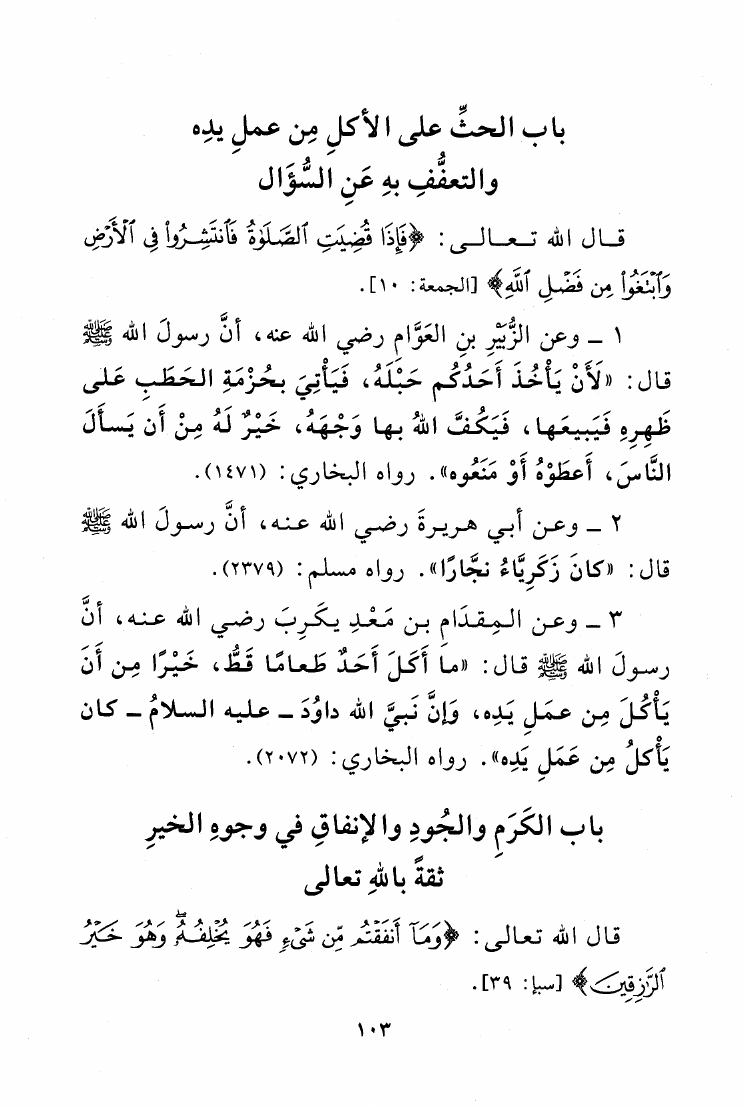 باب الحثِّ على الأكلِ مِن عملِ يدِه
والتعفُّفِ بهِ عَنِ السُّؤَال
قال الله تعالى: ﴿فَإِذَا قُضِيَتِ ٱلصَّلَوٰةُ فَٱنتَشِرُواْ فِى ٱلْأَرْضِ
وَٱبْتَغُواْ مِن فَضْلِ ٱللَّهِ﴾ [الجمعة: ١٠].
١ ـ وعن الزُّبَيْرِ بنِ العَوَّامِ رضي الله عنه، أنَّ رسولَ الله ﷺ
قال: «لَأَنْ يَأْخُذَ أَحَدُكُم حَبْلَهُ، فَيَأْتِيَ بحُزْمَةِ الحَطَبِ عَلى
ظَهرِهِ فَيَبيعَها، فَيَكُفَّ اللهُ بها وَجْهَهُ، خَيْرٌ لَهُ مِنْ أَن يَسأَلَ
النَّاسَ، أَعطَوْهُ أَوْ مَنَعُوه». رواه البخاري: (١٤٧١).
٢ ـ وعن أبي هريرةَ رضي الله عنه، أنَّ رسولَ الله ﷺ
قال: «كانَ زَكَرِيَّاءُ نجَّارًا». رواه مسلم: (٢٣٧٩).
٣ ـ وعن المِقدَامِ بن مَعْدِ يكَرِبَ رضي الله عنه، أنَّ
رسولَ الله ﷺ قال: «ما أَكَلَ أَحَدٌ طَعامًا قَطُّ، خَيْرًا مِن أَن
يَأْكُلَ مِن عمَلِ يَدِه، وَإنَّ نَبيَّ الله داوُدَ ـ عليه السلامُ ـ كان
يَأكلُ مِن عَمَلِ يَدِه». رواه البخاري: (٢٠٧٢).
باب الكَرَمِ والجُودِ والإنفاقِ في وجوهِ الخيرِ
ثقةً باللهِ تعالى
قال الله تعالى: ﴿وَمَآ أَنفَقْتُم مِّن شَىْءٍ فَهُوَ يُخْلِفُهُۥ ۖ وَهُوَ خَيْرُ
ٱلرَّٰزِقِينَ﴾ [سبإ: ٣٩].
١٠٣